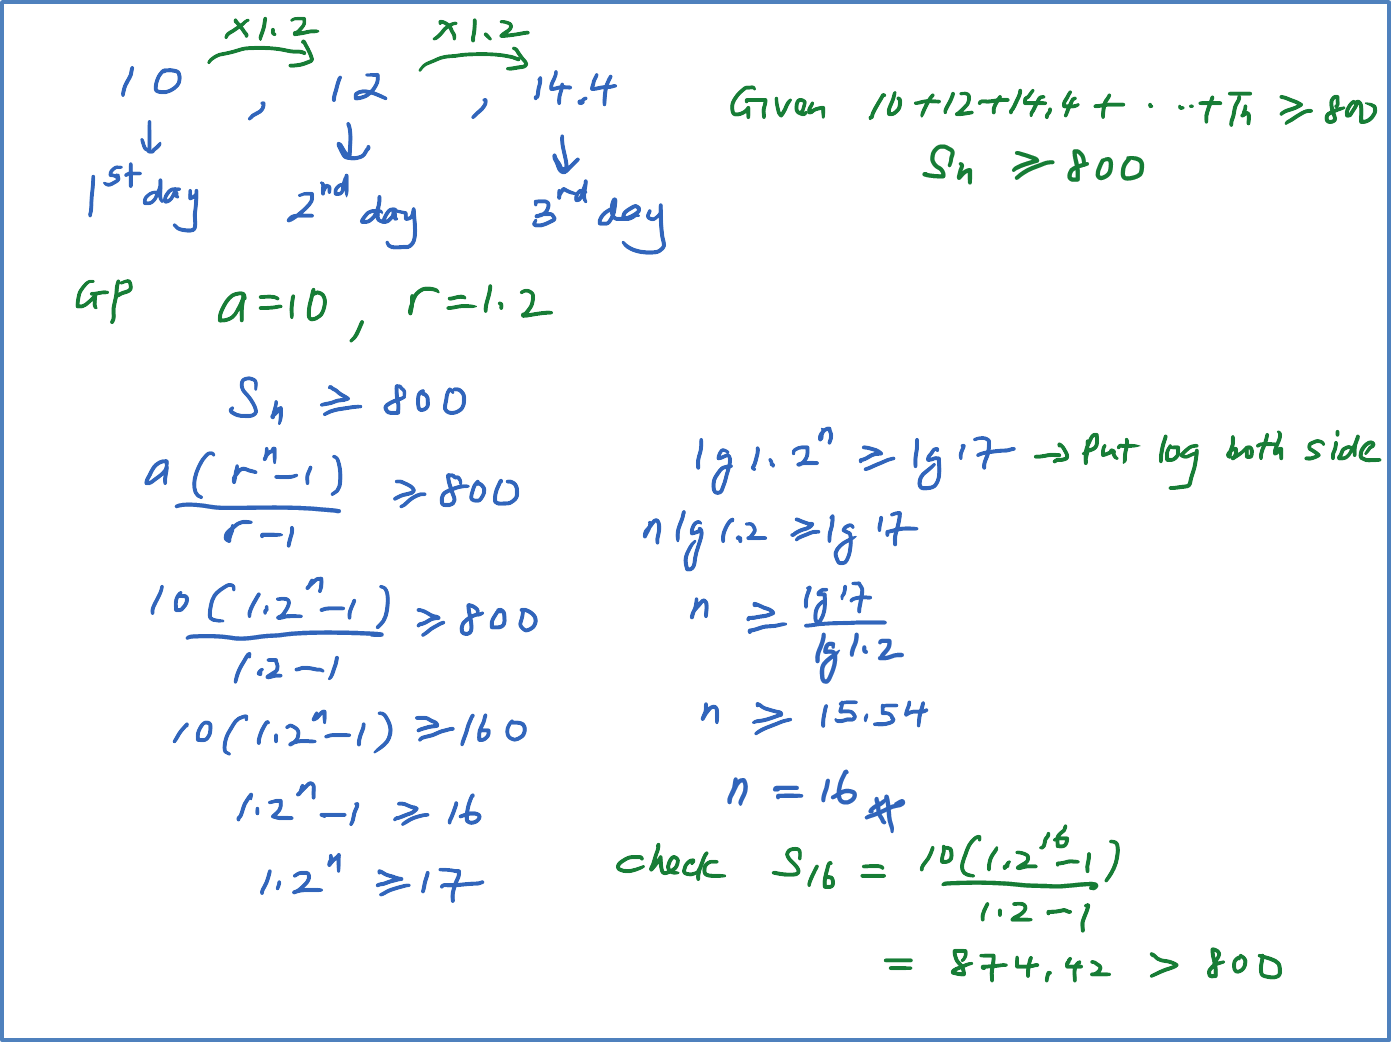 ×1.2 ×1.2
10 , 12 , 14.4
1st day 2nd day 3rd day
Given 10+12+14.4+ · ··+Tn ⩾ 800
Sn ⩾ 800
GP a=10 , r=1.2
Sn ⩾ 800
a(r^n-1)/(r-1) ⩾ 800
10(1.2^n-1)/(1.2-1) ⩾ 800
10(1.2^n-1) ⩾ 160
1.2^n-1 ⩾ 16
1.2^n ⩾ 17
lg 1.2^n ⩾ lg 17 → Put log both side
n lg 1.2 ⩾ lg 17
n ⩾ lg 17/lg 1.2
n ⩾ 15.54
n = 16
check S16 = 10(1.2^16-1)/(1.2-1)
= 874.42 > 800